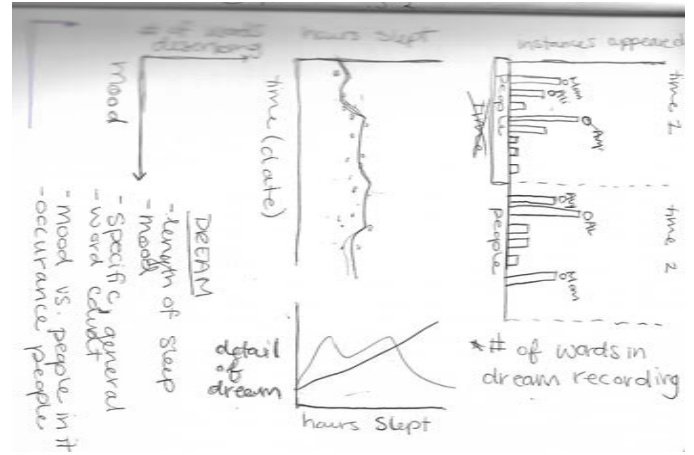 # of words
describing
mood
hours slept
time (date)
instances appeared
time 1
people
Mom
time 2
people
Mom
DREAM
- length of sleep
- mood
- specific general
word count
- mood vs. people in it
- occurance people
detail
of
dream
hours slept
*# of words in
dream recording